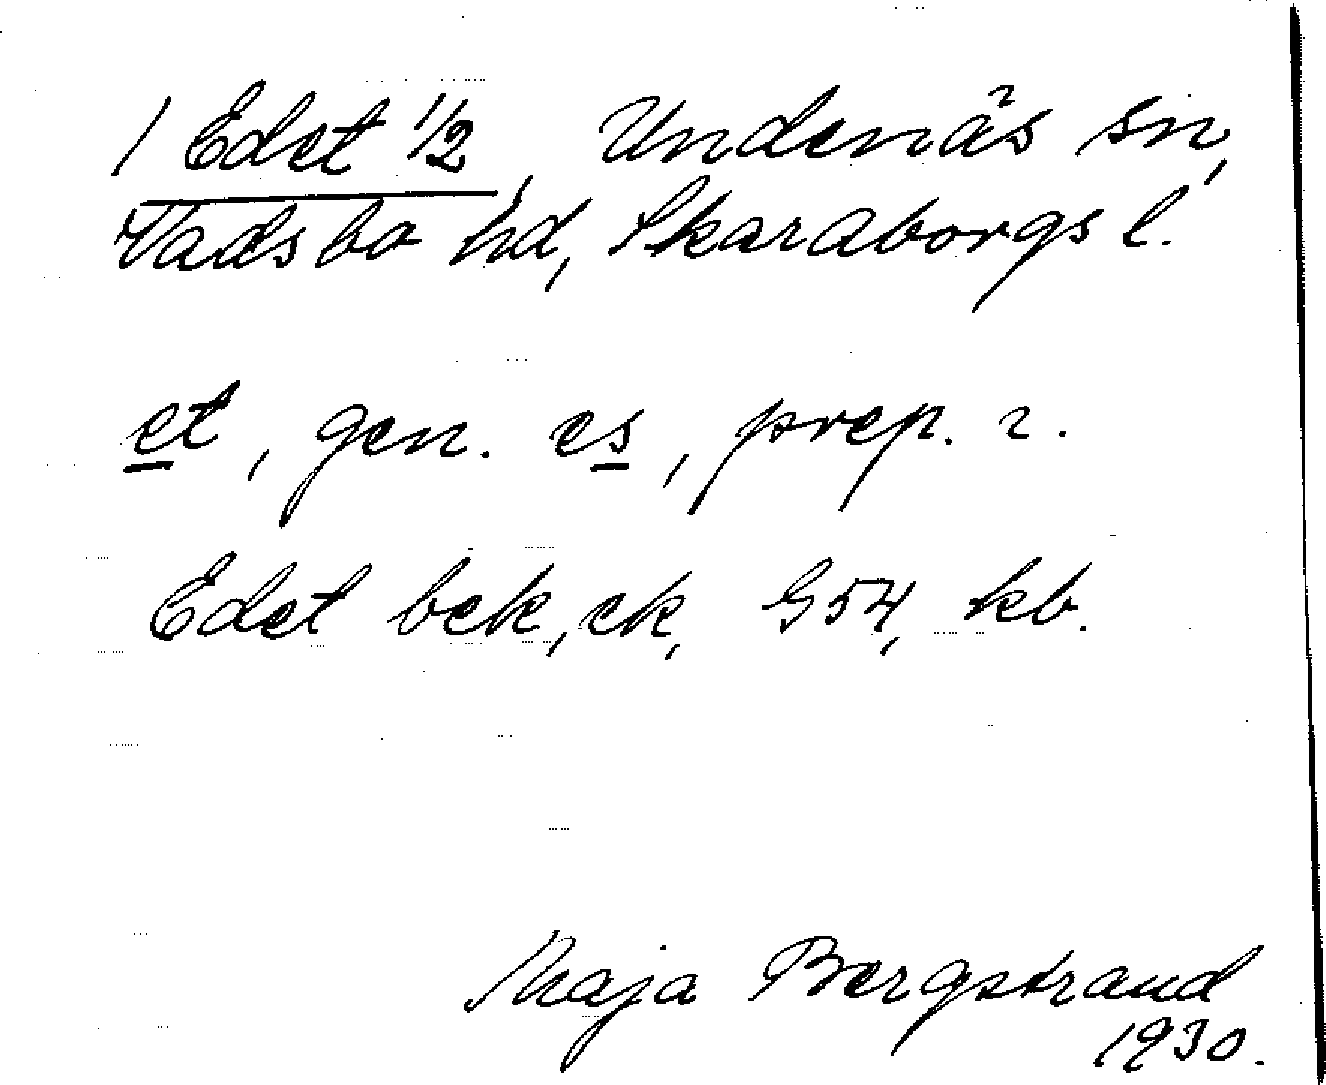 / Edet 1/2, Undenäs sn,
Vadsbo hd, Skaraborgs l.
et, gen. es, prep. i.
Edet bek, ek, G54, kb.
Maja Bergstrand
1930.